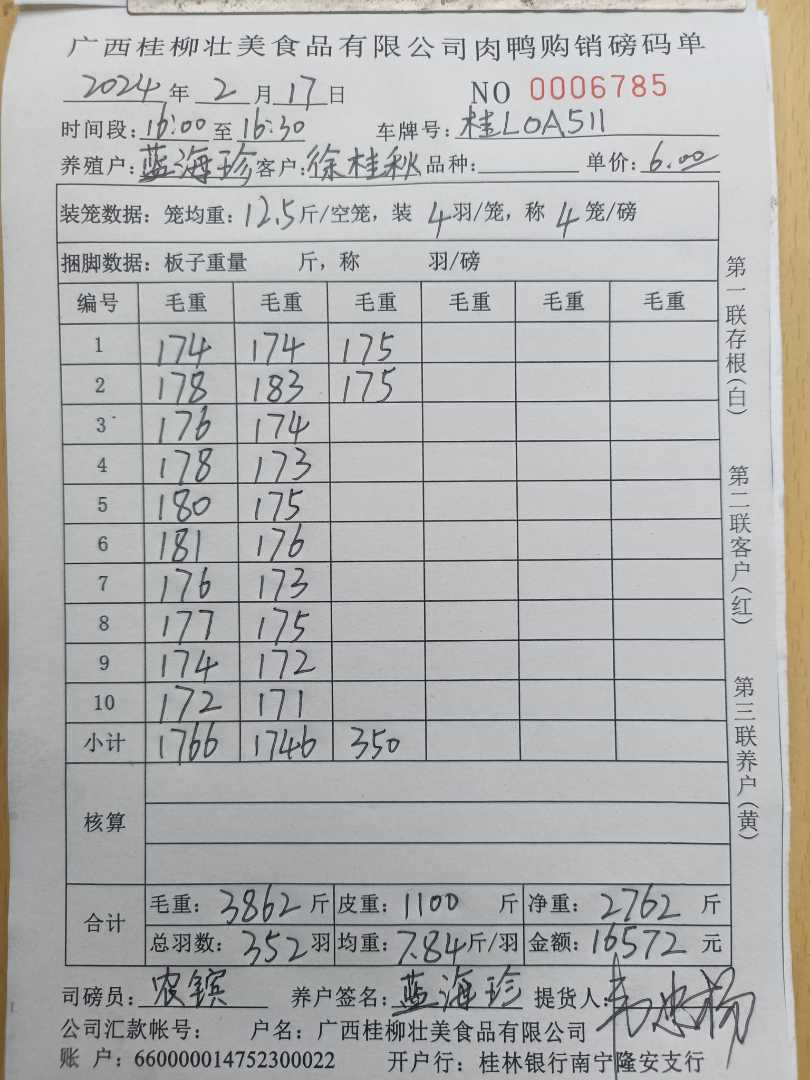 广西桂柳壮美食品有限公司肉鸭购销磅码单
2024年 2月17日 NO 0006785
时间段:16:00至16:30 车牌号:桂L0A511
养殖户:蓝海珍 客户:徐桂秋 品种: 单价:6.00
装笼数据:笼均重:12.5斤/空笼,装 4羽/笼,称 4笼/磅
捆脚数据:板子重量 斤,称 羽/磅
编号 毛重 毛重 毛重 毛重 毛重 毛重
1 174 174 175
2 178 183 175
3 176 174
4 178 173
5 180 175
6 181 176
7 176 173
8 177 175
9 174 172
10 172 171
小计 1766 1746 350
核算
合计 毛重:3862斤 皮重:1100斤 净重:2762斤
总羽数:352羽 均重:7.84斤/羽 金额:16572元
司磅员:农镔 养户签名:蓝海珍 提货人:
公司汇款帐号: 户名:广西桂柳壮美食品有限公司
账 户:660000014752300022 开户行:桂林银行南宁隆安支行
第一联存根(白)
第二联客户(红)
第三联养户(黄)